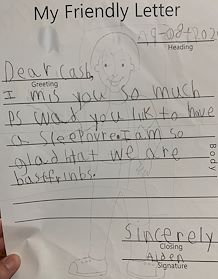 My Friendly Letter
Heading
Dear Cash,
Greeting
I mis you so much
PS wad you lik to have
a sleepovre. I am so
glad that we are
bastfrinbs.
Body
Sincerely
Closing
Aiden
Signature